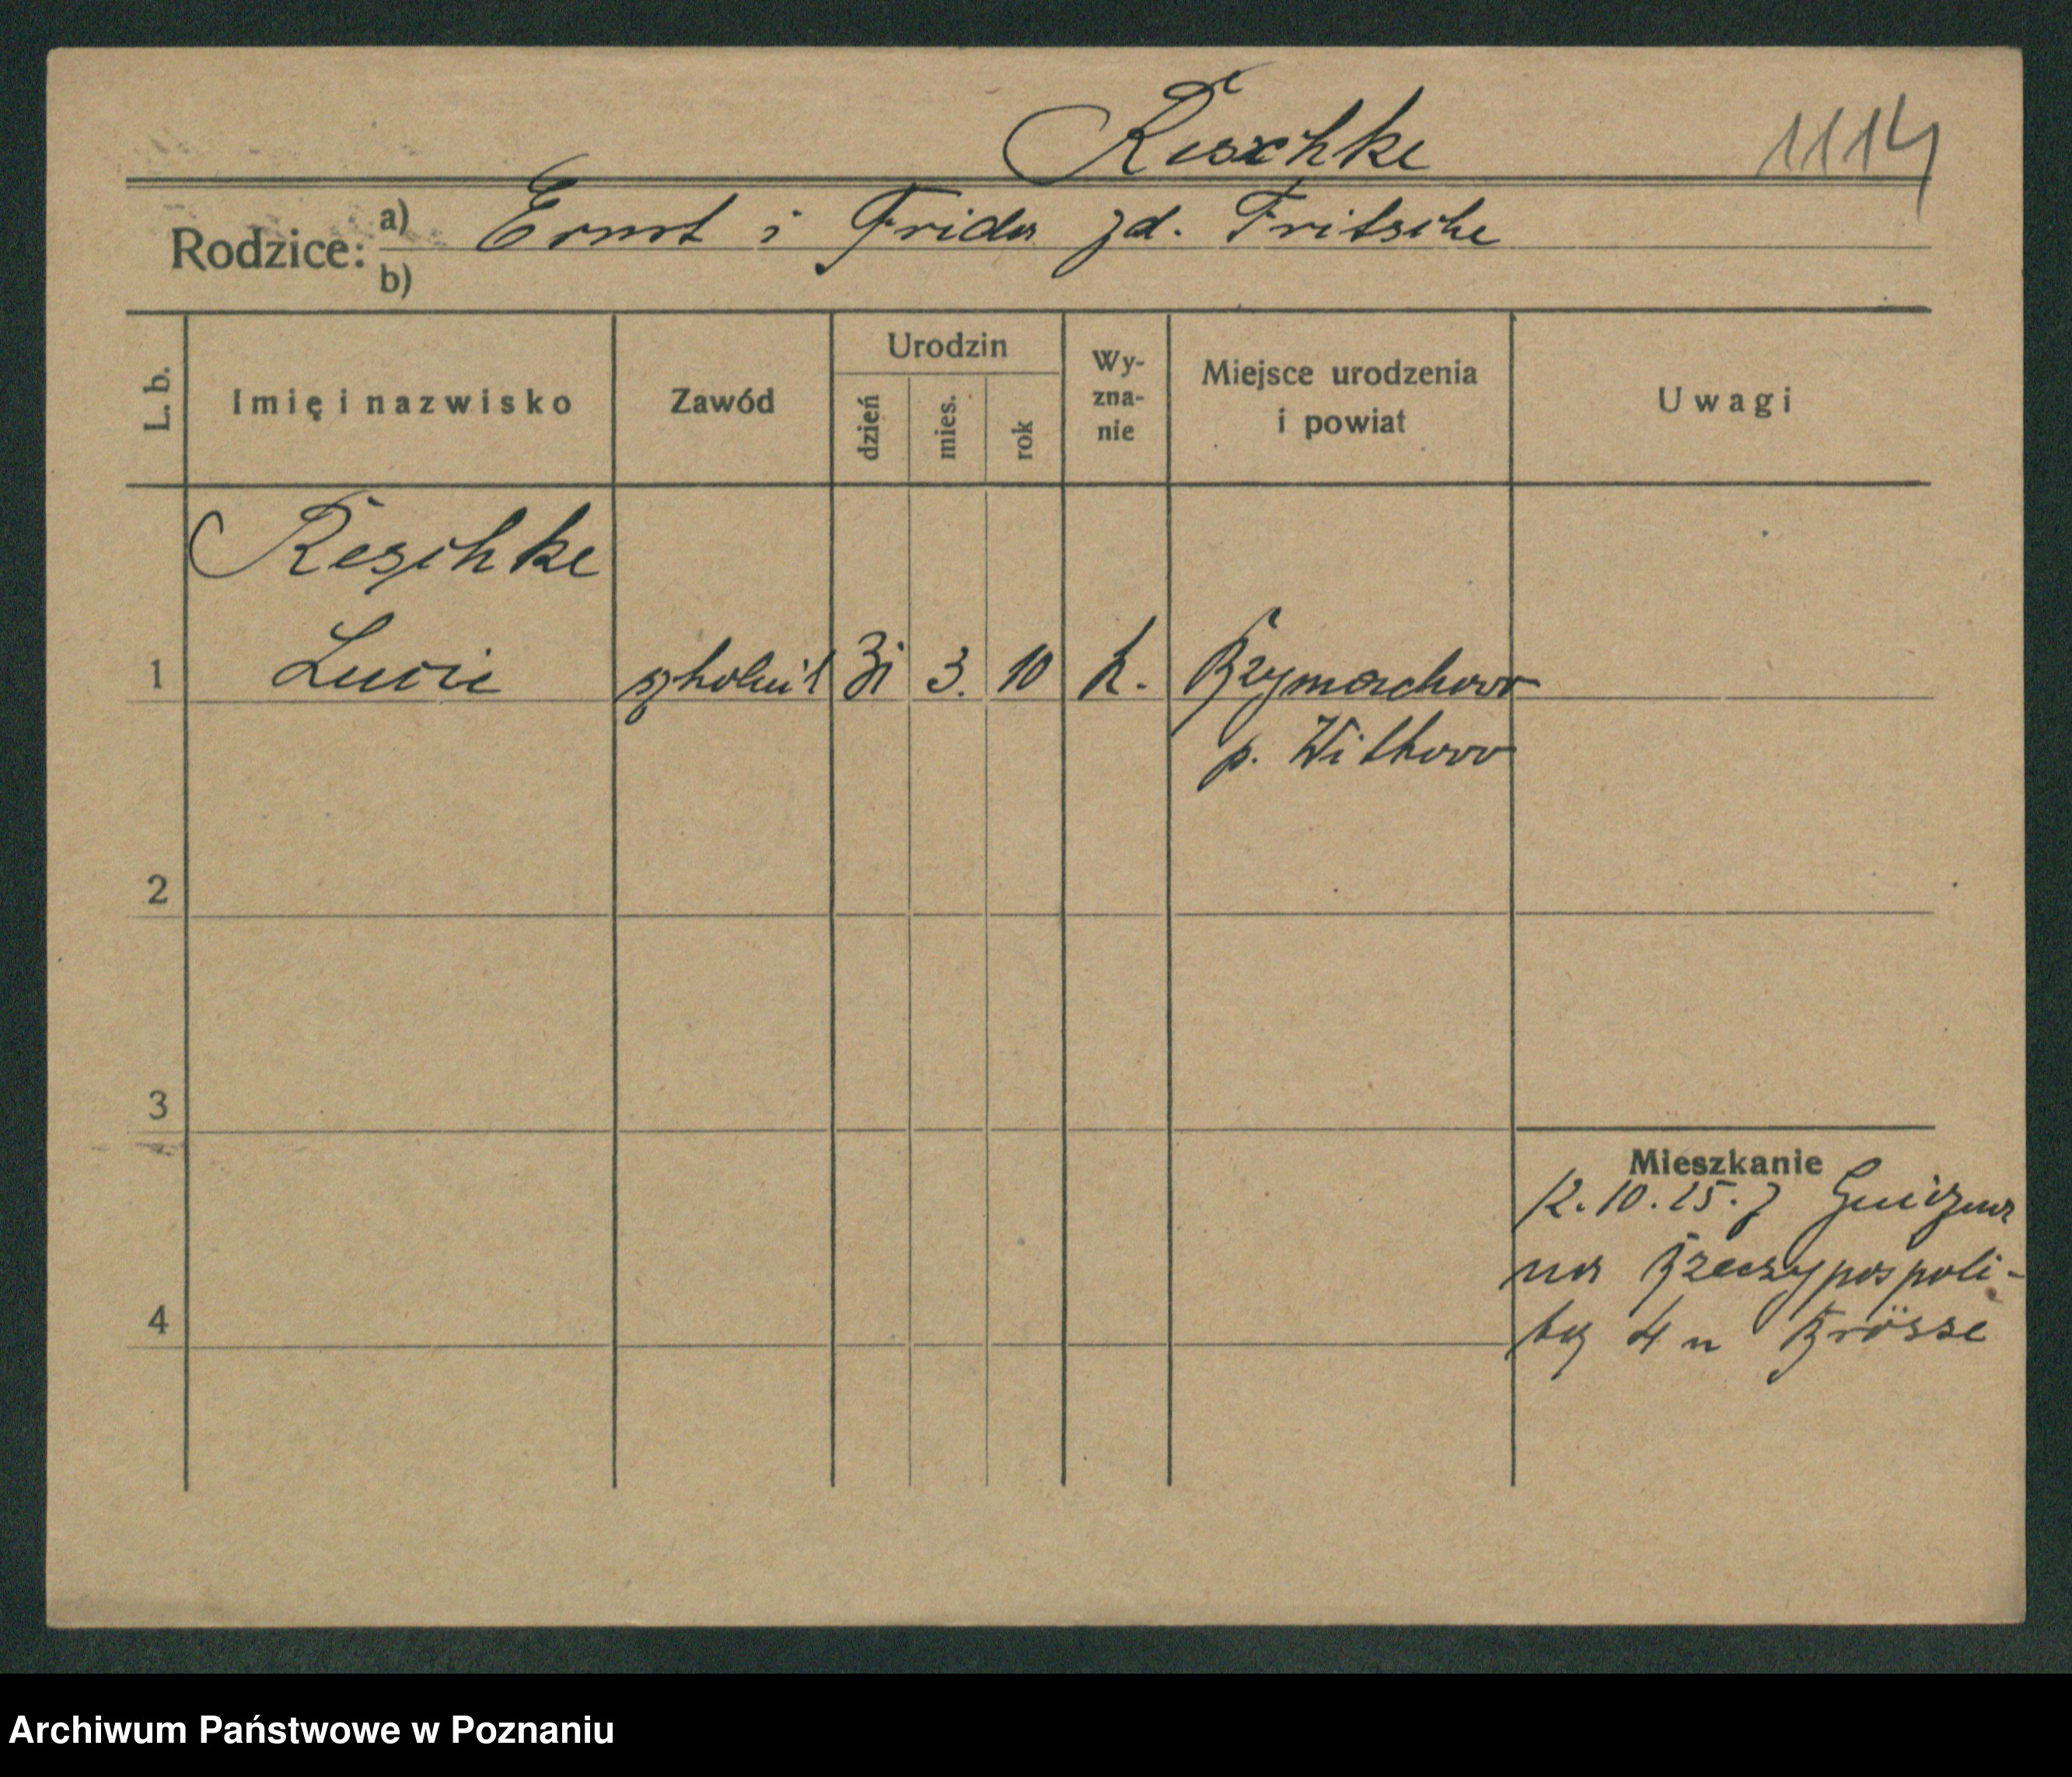 Reschke 1114
Rodzice: a) Ernst i Frida zd. Fritsche
b)
L. b. Imię i nazwisko Zawód Urodzin dzień mies. rok Wy-zna-nie Miejsce urodzenia i powiat Uwagi
Reschke
1 Lucie 31 3. 10 k.
p. Witkowo
2
3
Mieszkanie
12.10.25. z Gniezna
na Rzeczypospoli-
4 tej 4 u Krösse
Archiwum Państwowe w Poznaniu